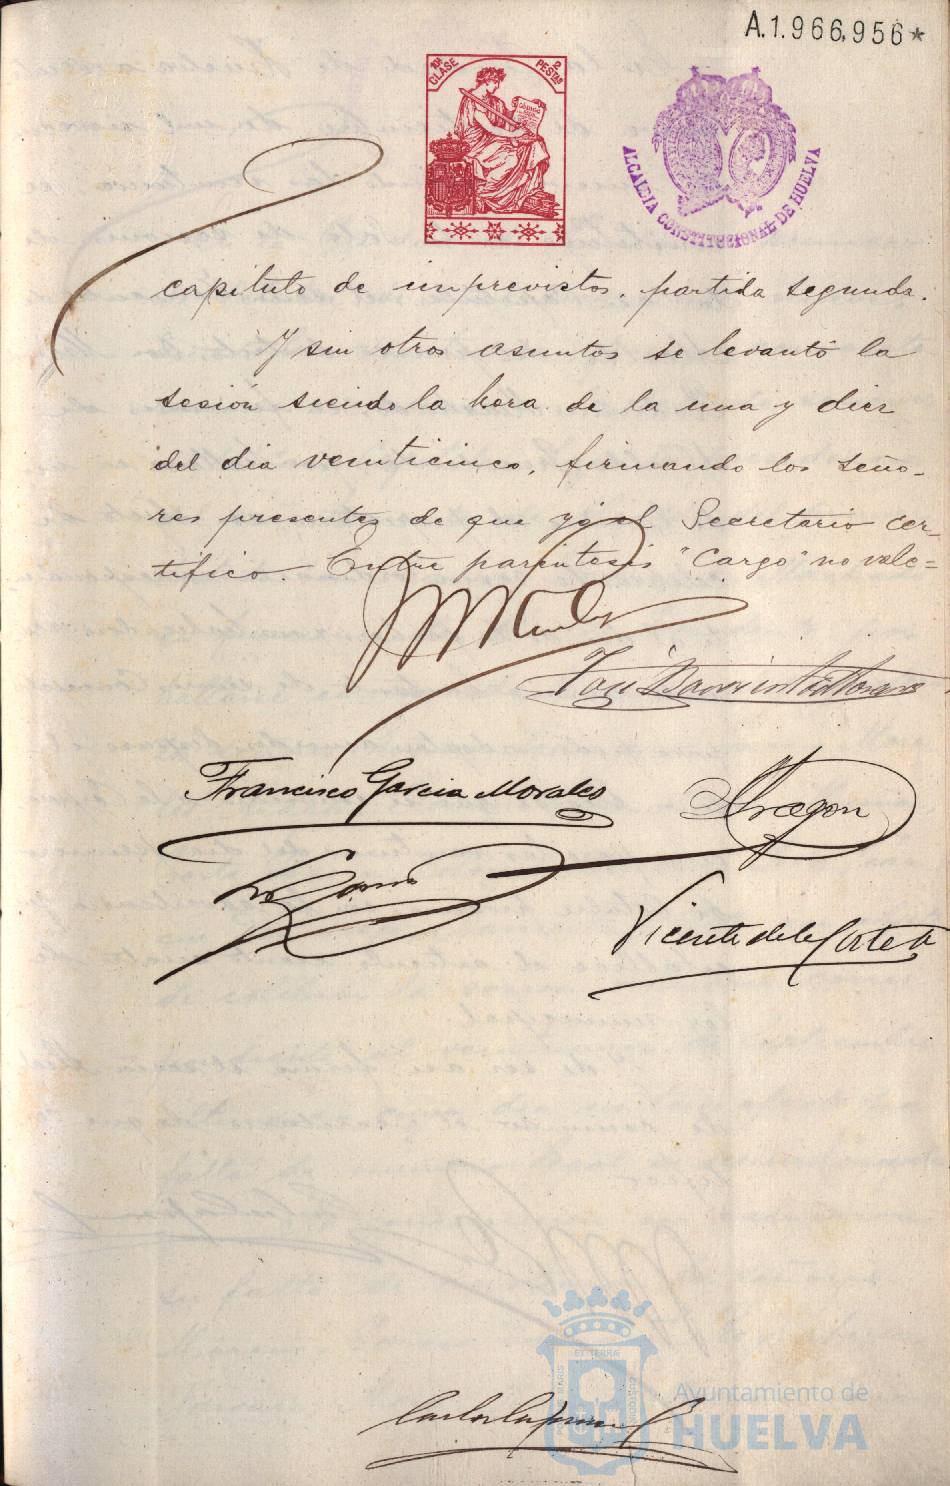 A.1.966,956*
10ª CLASE 2 PESTAS
ALCALDIA CONSTITUCIONAL DE HUELVA
capitulo de imprevistos, partida segunda.
Y sin otros asuntos se levantó la
sesión siendo la hora de la una y diez
del dia veinticinco, firmando los seño-
res presentes de que yo el Secretario cer-
tifico. Entre parentesis "Cargo" no vale=
José
Francisco Garcia Morales
Aragon
Vicente de la Corte
Ayuntamiento de
HUELVA